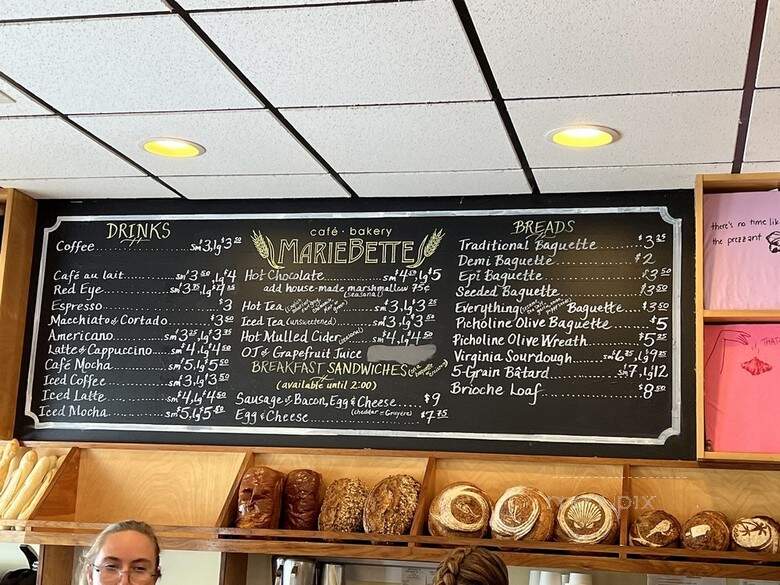 DRINKS
Coffee sm $3, lg $3.50
Café au lait sm $3.50, lg $4
Red Eye sm $3.75, lg $4.25
Espresso $3
Macchiato & Cortado $3.50
Americano sm $3.25, lg $3.75
Latte & Cappuccino sm $4, lg $4.50
Café Mocha sm $5, lg $5.50
Iced Coffee sm $3, lg $3.50
Iced Latte sm $4, lg $4.50
Iced Mocha sm $5, lg $5.50
café • bakery
MARIEBETTE
Hot Chocolate sm $4.50, lg $5
add house-made marshmallow 75¢
(seasonal)
Hot Tea sm $3, lg $3.25
Iced Tea (unsweetened) sm $3, lg $3.50
Hot Mulled Cider (seasonal) sm $4, lg $4.50
OJ & Grapefruit Juice
BREAKFAST SANDWICHES
(available until 2:00)
Sausage or Bacon, Egg & Cheese $9
Egg & Cheese (cheddar or Gruyère) $7.75
BREADS
Traditional Baguette $3.25
Demi Baguette $2
Epi Baguette $3.50
Seeded Baguette $3.50
Everything Baguette $3.50
Picholine Olive Baguette $5
Picholine Olive Wreath $5.25
Virginia Sourdough sm $6.25, lg $9.75
5-Grain Bâtard sm $7, lg $12
Brioche Loaf $8.50
there's no time like
the prezzant
THAT